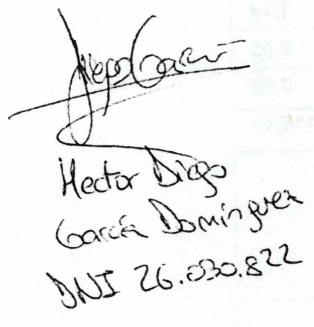 Diego García
Hector Diego
García Domínguez
DNI 26.030.822